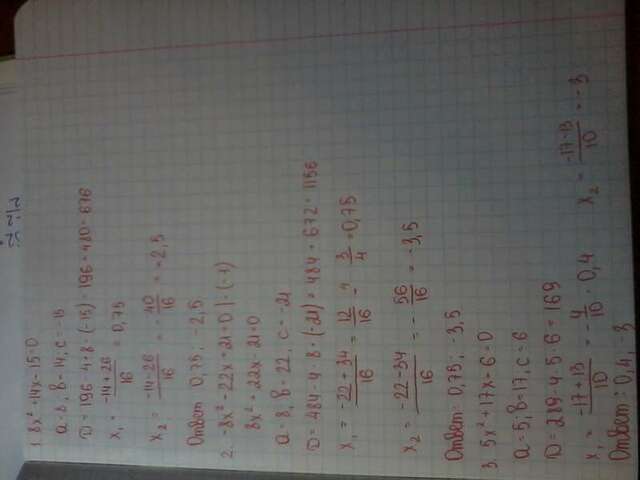 1. 8x² + 14x - 15 = 0
a = 8, b = 14; c = -15
D = 196 - 4 · 8 · (-15) = 196 + 480 = 676
x₁ = (-14 + 26)/16 = 0,75
x₂ = (-14 - 26)/16 = - 40/16 = -2,5
Ответ: 0,75; -2,5
2. -8x² - 22x + 21 = 0 | · (-1)
8x² + 22x - 21 = 0
a = 8, b = 22, c = -21
D = 484 - 4 · 8 · (-21) = 484 + 672 = 1156
x₁ = (-22 + 34)/16 = 12/16 = 3/4 = 0,75
x₂ = (-22 - 34)/16 = - 56/16 = -3,5
Ответ: 0,75; -3,5
3. 5x² + 17x - 6 = 0
a = 5, b = 17, c = 6
D = 289 - 4 · 5 · 6 = 169
x₁ = (-17 + 13)/10 = - 4/10 = 0,4 x₂ = (-17 - 13)/10 = -3
Ответ: 0,4; -3